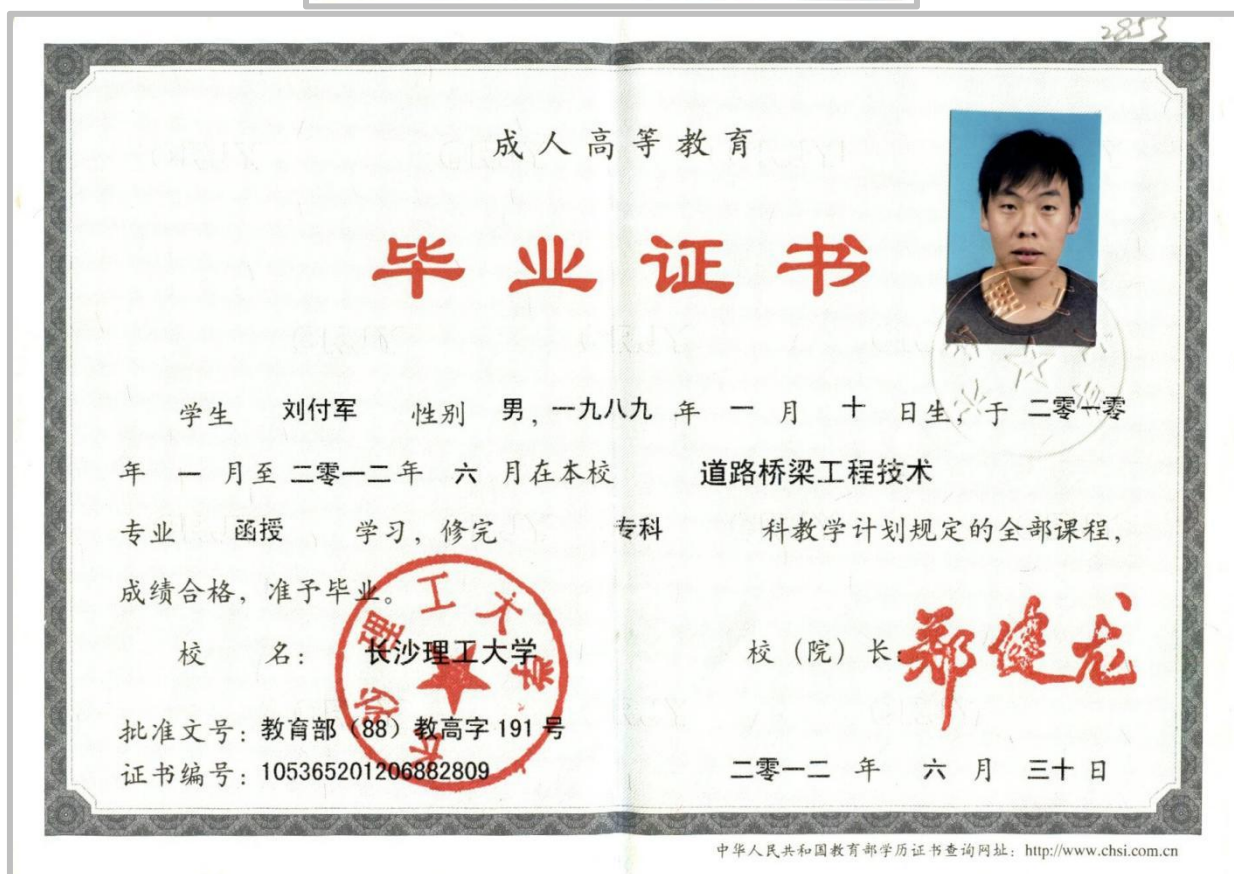 2853
成人高等教育
毕业证书
学生 刘付军 性别 男，一九八九 年 一 月 十 日生，于 二零一零
年 一 月至 二零一二 年 六 月在本校 道路桥梁工程技术
专业 函授 学习，修完 专科 科教学计划规定的全部课程，
成绩合格，准予毕业。
校 名： 长沙理工大学 校（院）长：郑健龙
长沙理工大学
批准文号：教育部（88）教高字 191 号
证书编号：105365201206882809 二零一二 年 六 月 三十 日
中华人民共和国教育部学历证书查询网址：http://www.chsi.com.cn